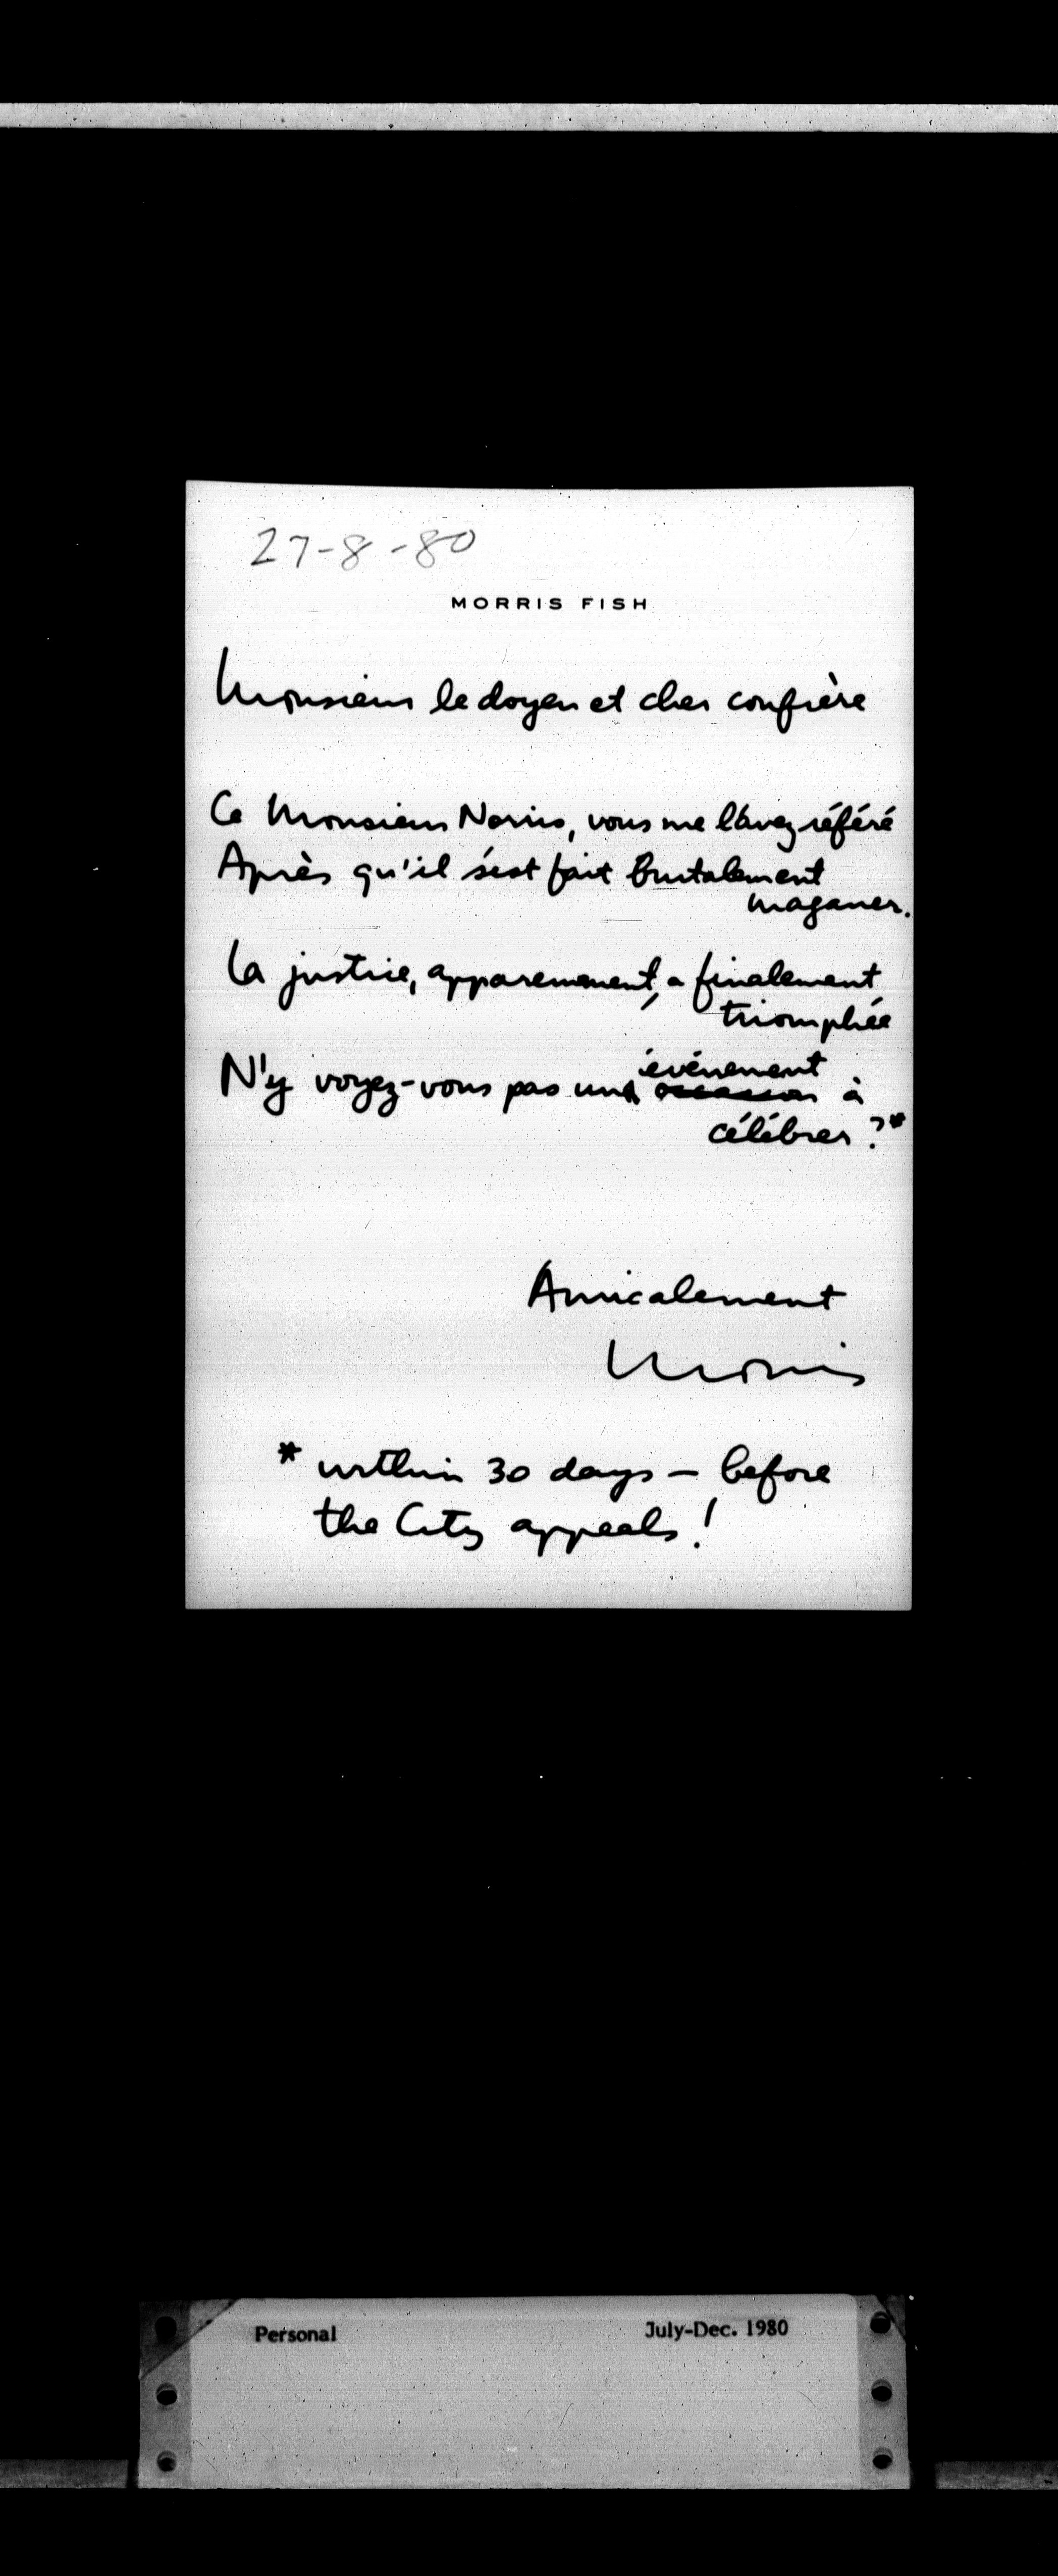 27-8-80
MORRIS FISH
Monsieur le doyen et cher confrère
Ce Monsieur Norris, vous me l'avez référé
Après qu'il s'est fait brutalement
maganer.
La justice, apparemment, a finalement
triomphée
N'y voyez-vous pas un événement à
célébrer ?*
Amicalement
Morris
* within 30 days – before
the City appeals!
Personal July-Dec. 1980